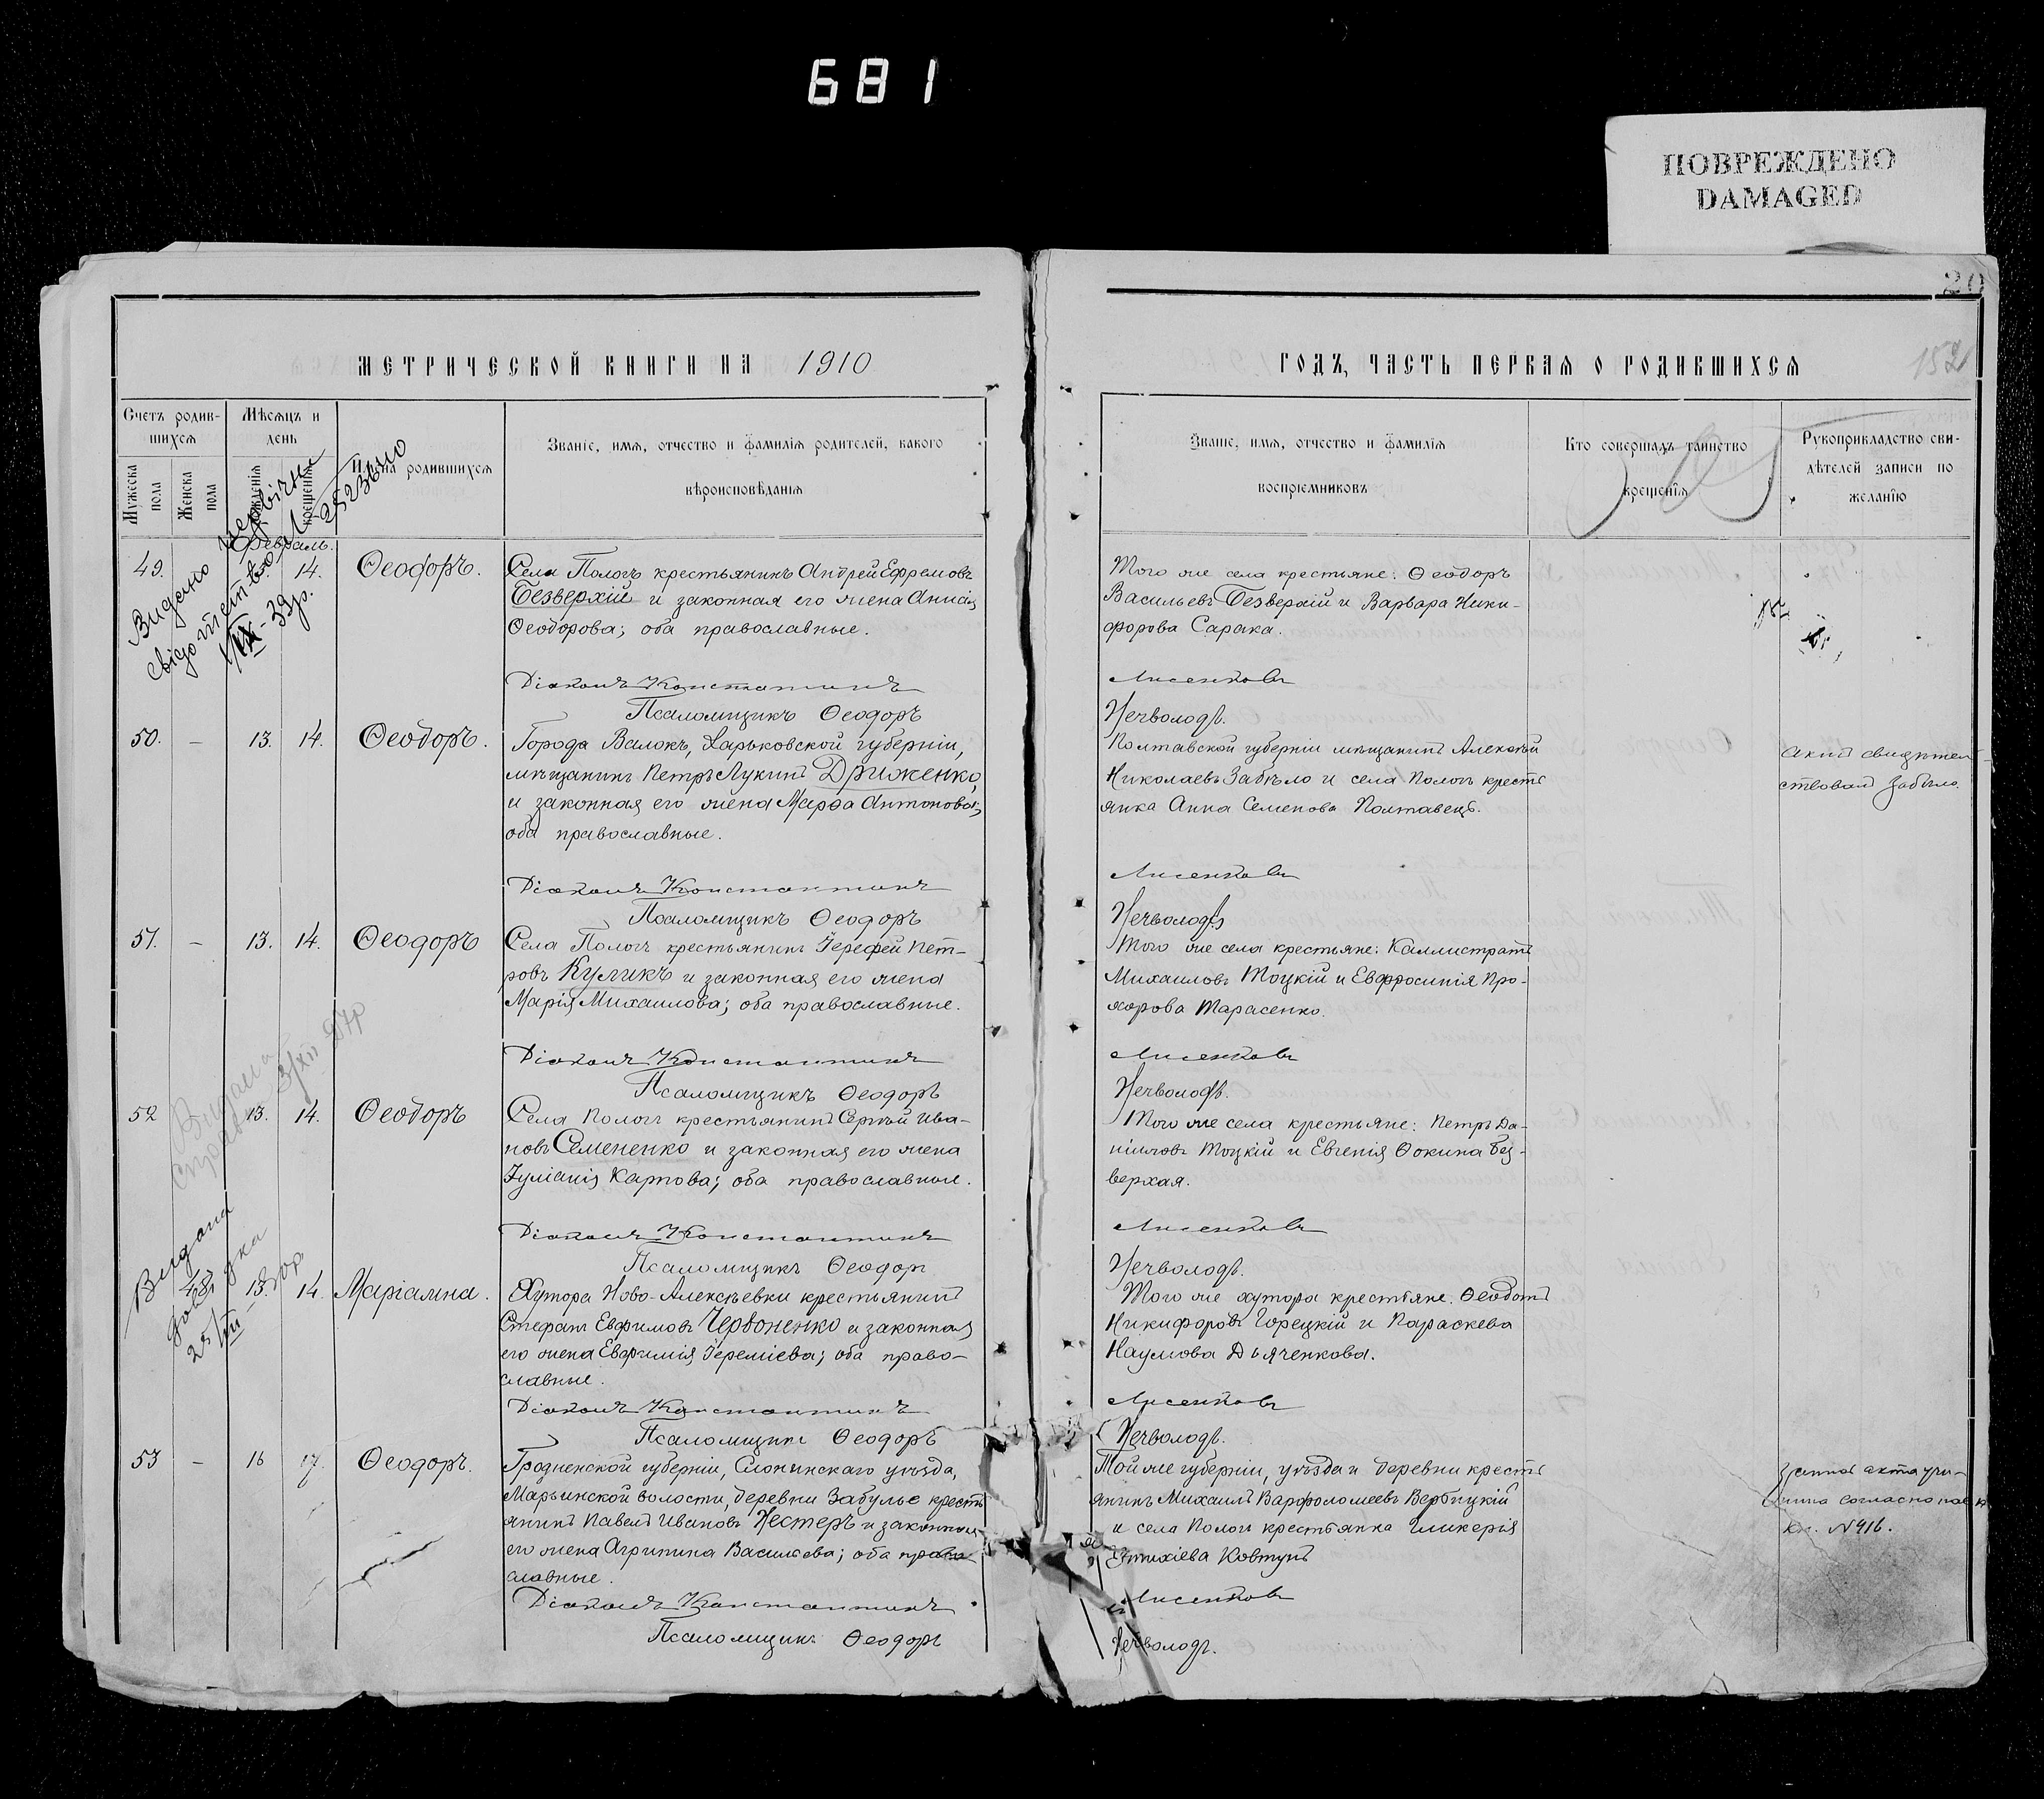 681
ПОВРЕЖДЕНО
DAMAGED
20
МЕТРИЧЕСКОЙ КНИГИ НА 1910
ГОДЪ, ЧАСТЬ ПЕРВАЯ О РОДИВШИХСЯ
152
Счетъ родив-
шихся
Мужеска пола
Женска пола
Мѣсяцъ и
день
рожденія
крещенія
Имена родившихся
Званіе, имя, отчество и фамилія родителей, какого
вѣроисповѣданія
Званіе, имя, отчество и фамилія
воспріемниковъ
Кто совершалъ таинство
крещенія
Рукоприкладство сви-
дѣтелей записи по
желанію
Февраль.
Видано
49. 14. Ѳеодоръ.
Села Пологъ крестьянинъ Андрей Ефремовъ
Безверхій и законная его жена Анисія
Ѳеодорова; оба православные.
Того же села крестьяне: Ѳеодоръ
Васильевъ Безверхій и Варвара Ники-
форова Сарака.
Діаконъ Константинъ
Лисенковъ
Псаломщикъ Ѳеодоръ
Нечволодъ.
50. – 13. 14. Ѳеодоръ.
Города Валокъ, Харьковской губерніи,
мѣщанинъ Петръ Лукинъ Дриженко,
и законная его жена Марѳа Антонова;
оба православные.
Полтавской губерніи мѣщанинъ Алексѣй
Николаевъ Забѣло и села Пологъ кресть
янка Анна Семенова Полтавецъ.
Діаконъ Константинъ
Лисенковъ
Псаломщикъ Ѳеодоръ
Нечволодъ
51. – 13. 14. Ѳеодоръ
Села Пологъ крестьянинъ Іерофей Пет-
ровъ Куликъ и законная его жена
Марія Михаилова; оба православные.
Того же села крестьяне: Каллистратъ
Михаиловъ Тоцкій и Евфросинія Про-
хорова Тарасенко.
Діаконъ Константинъ
Лисенковъ
Псаломщикъ Ѳеодоръ
Нечволодъ.
52 13. 14. Ѳеодоръ
Села Пологъ крестьянинъ Сергѣй Ива-
новъ Семененко и законная его жена
Іуліанія Карпова; оба православные.
Того же села крестьяне: Петръ Да-
ніиловъ Тоцкій и Евгенія Ѳокина Без-
верхая.
Діаконъ Константинъ
Лисенковъ
Псаломщикъ Ѳеодоръ
Нечволодъ.
Видана
48 13. 14. Маріамна.
Хутора Ново-Алексѣевки крестьянинъ
Стефанъ Евфимовъ Червоненко и законная
его жена Евфимія Іереміева; оба право-
славные.
Того же хутора крестьяне: Ѳеодотъ
Никифоровъ Горецкій и Параскева
Наумова Дьяченкова.
Діаконъ Константинъ
Лисенковъ
Псаломщикъ Ѳеодоръ
Нечволодъ.
53 – 16 17. Ѳеодоръ.
Гродненской губерніи, Слонимскаго уѣзда,
Марьинской волости, деревни Забулье кресть
янинъ Павелъ Ивановъ Нестеръ и законная
его жена Агрипина Васильева; оба право
славные.
Той же губерніи, уѣзда и деревни кресть
янинъ Михаилъ Варфоломеевъ Вербицкій
и села Пологъ крестьянка Гликерія
Евтихіева Ковтунъ
№ 416.
Діаконъ Константинъ
Лисенковъ
Псаломщикъ Ѳеодоръ
Нечволодъ.